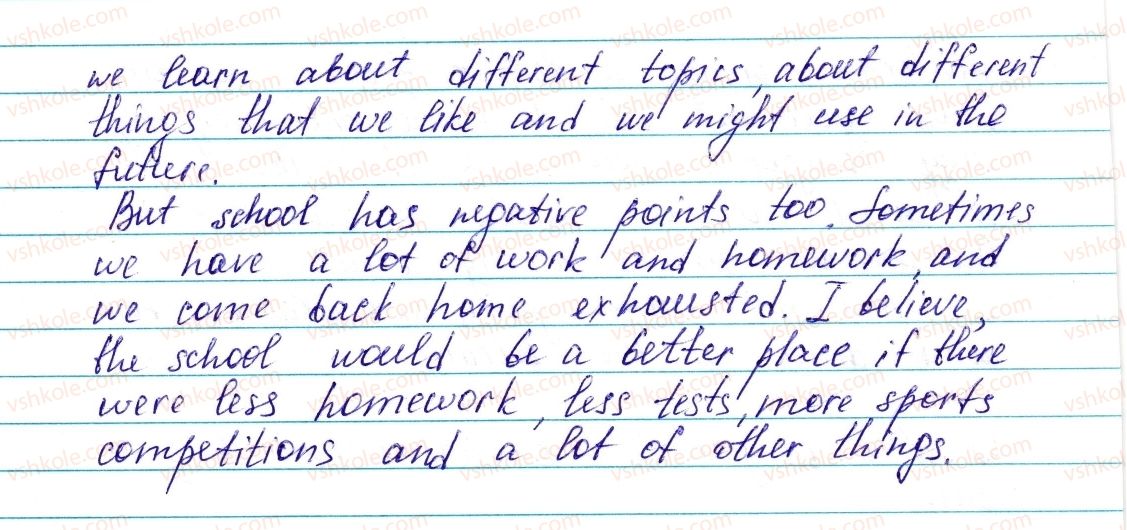 we learn about different topics, about different
things that we like and we might use in the
future.
But school has negative points too. Sometimes
we have a lot of work and homework, and
we come back home exhausted. I believe,
the school would be a better place if there
were less homework, less tests, more sports
competitions and a lot of other things.